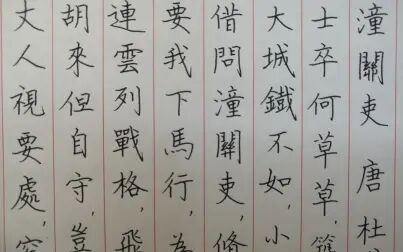 潼關吏 唐 杜
士卒何草草，築
大城鐵不如，小
借問潼關吏，修
要我下馬行，為
連雲列戰格，飛
胡來但自守，豈
丈人視要處，窄